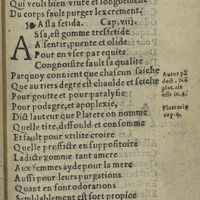 Qui veult bien vivre et longuement
Du corps fault purger l'excrement.
Assa fetida. Cap. viij.
Assa, est gomme tresfetide
A sentir, puente et olide
Pour en user par equité
Congnoistre fault sa qualité
Parquoy convient que chacun saiche
Que au tiers degre est chaulde et seiche
Pour goutte et pour paralysie
Pour podagre, et apoplexie,
Dict lauteur que Platere on nomme
Quelle tire, dissoult et consomme
Et fault pour vraye croire
Quelle proffite en suppositoire
Ladicte gomme tant amere
Aux femmes ayde pour la mere
Aussi pour leurs purgations
Quant en font odorations
Semblablement est fort propice
Autor
plus
est in. 4.
Platearius
cap. 4.